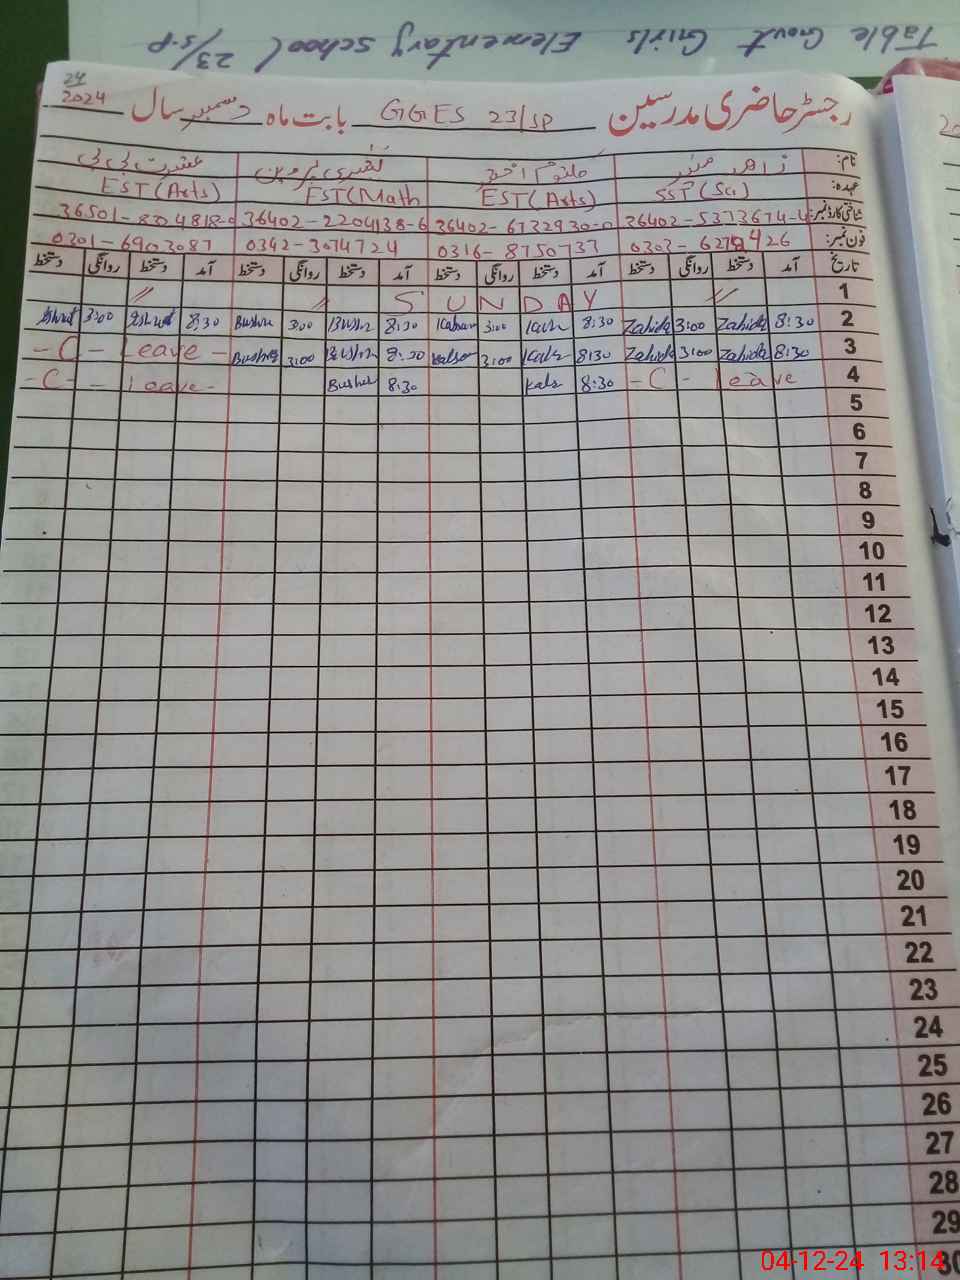 Table Govt Girls Elementary School 23/S.P
رجسٹر حاضری مدرسین GGES 23/SP بابت ماہ دسمبر سال 24 2024
نام: زاہدہ منیر کلثوم اختر بشریٰ پروین عشرت بی بی
عہدہ: SST (Sci) EST (Arts) EST (Math EST (Arts)
شناختی کارڈ نمبر: 36402-5373674-4 36402-6732930-0 36402-2204138-6 36501-8304818-0
فون نمبر: 0316-8750737 0342-3074724 0301-6903087
تاریخ آمد دستخط روانگی دستخط آمد دستخط روانگی دستخط آمد دستخط روانگی دستخط آمد دستخط روانگی دستخط
1 SUNDAY
2 8:30 Zahida 3:00 Zahida 8:30 3:00 8:30 3:00 Bushra 8:30 Ishrat 3:00 Ishrat
3 8:30 Zahida 3:00 Zahida 8:30 Kals 3:00 Kalsoom 8:30 Bushra 3:00 Bushra - C - Leave -
4 - C - leave 8:30 Kals 8:30 Bushra - C - - leave -
5
6
7
8
9
10
11
12
13
14
15
16
17
18
19
20
21
22
23
24
25
26
27
28
29
30
04-12-24 13:14